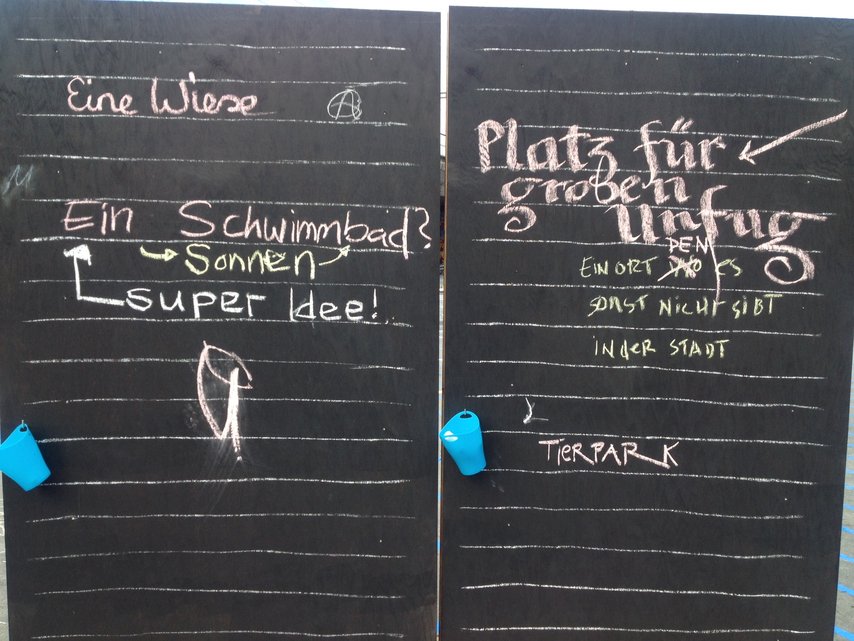 Eine Wiese Ⓐ
Ein Schwimmbad?
→ Sonnen
super Idee!
Platz für
großen
Unfug
DEN
EIN ORT WO ES
SONST NICHT GIBT
IN DER STADT
TIERPARK